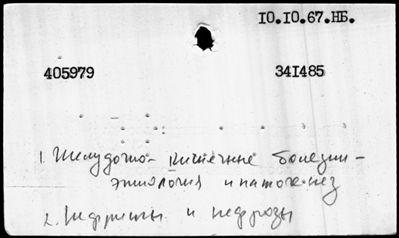 10.10.67.НБ.
405979 341485
1. Желудочно-кишечные болезни -
этиология и патогенез
2. Нефриты и нефрозы